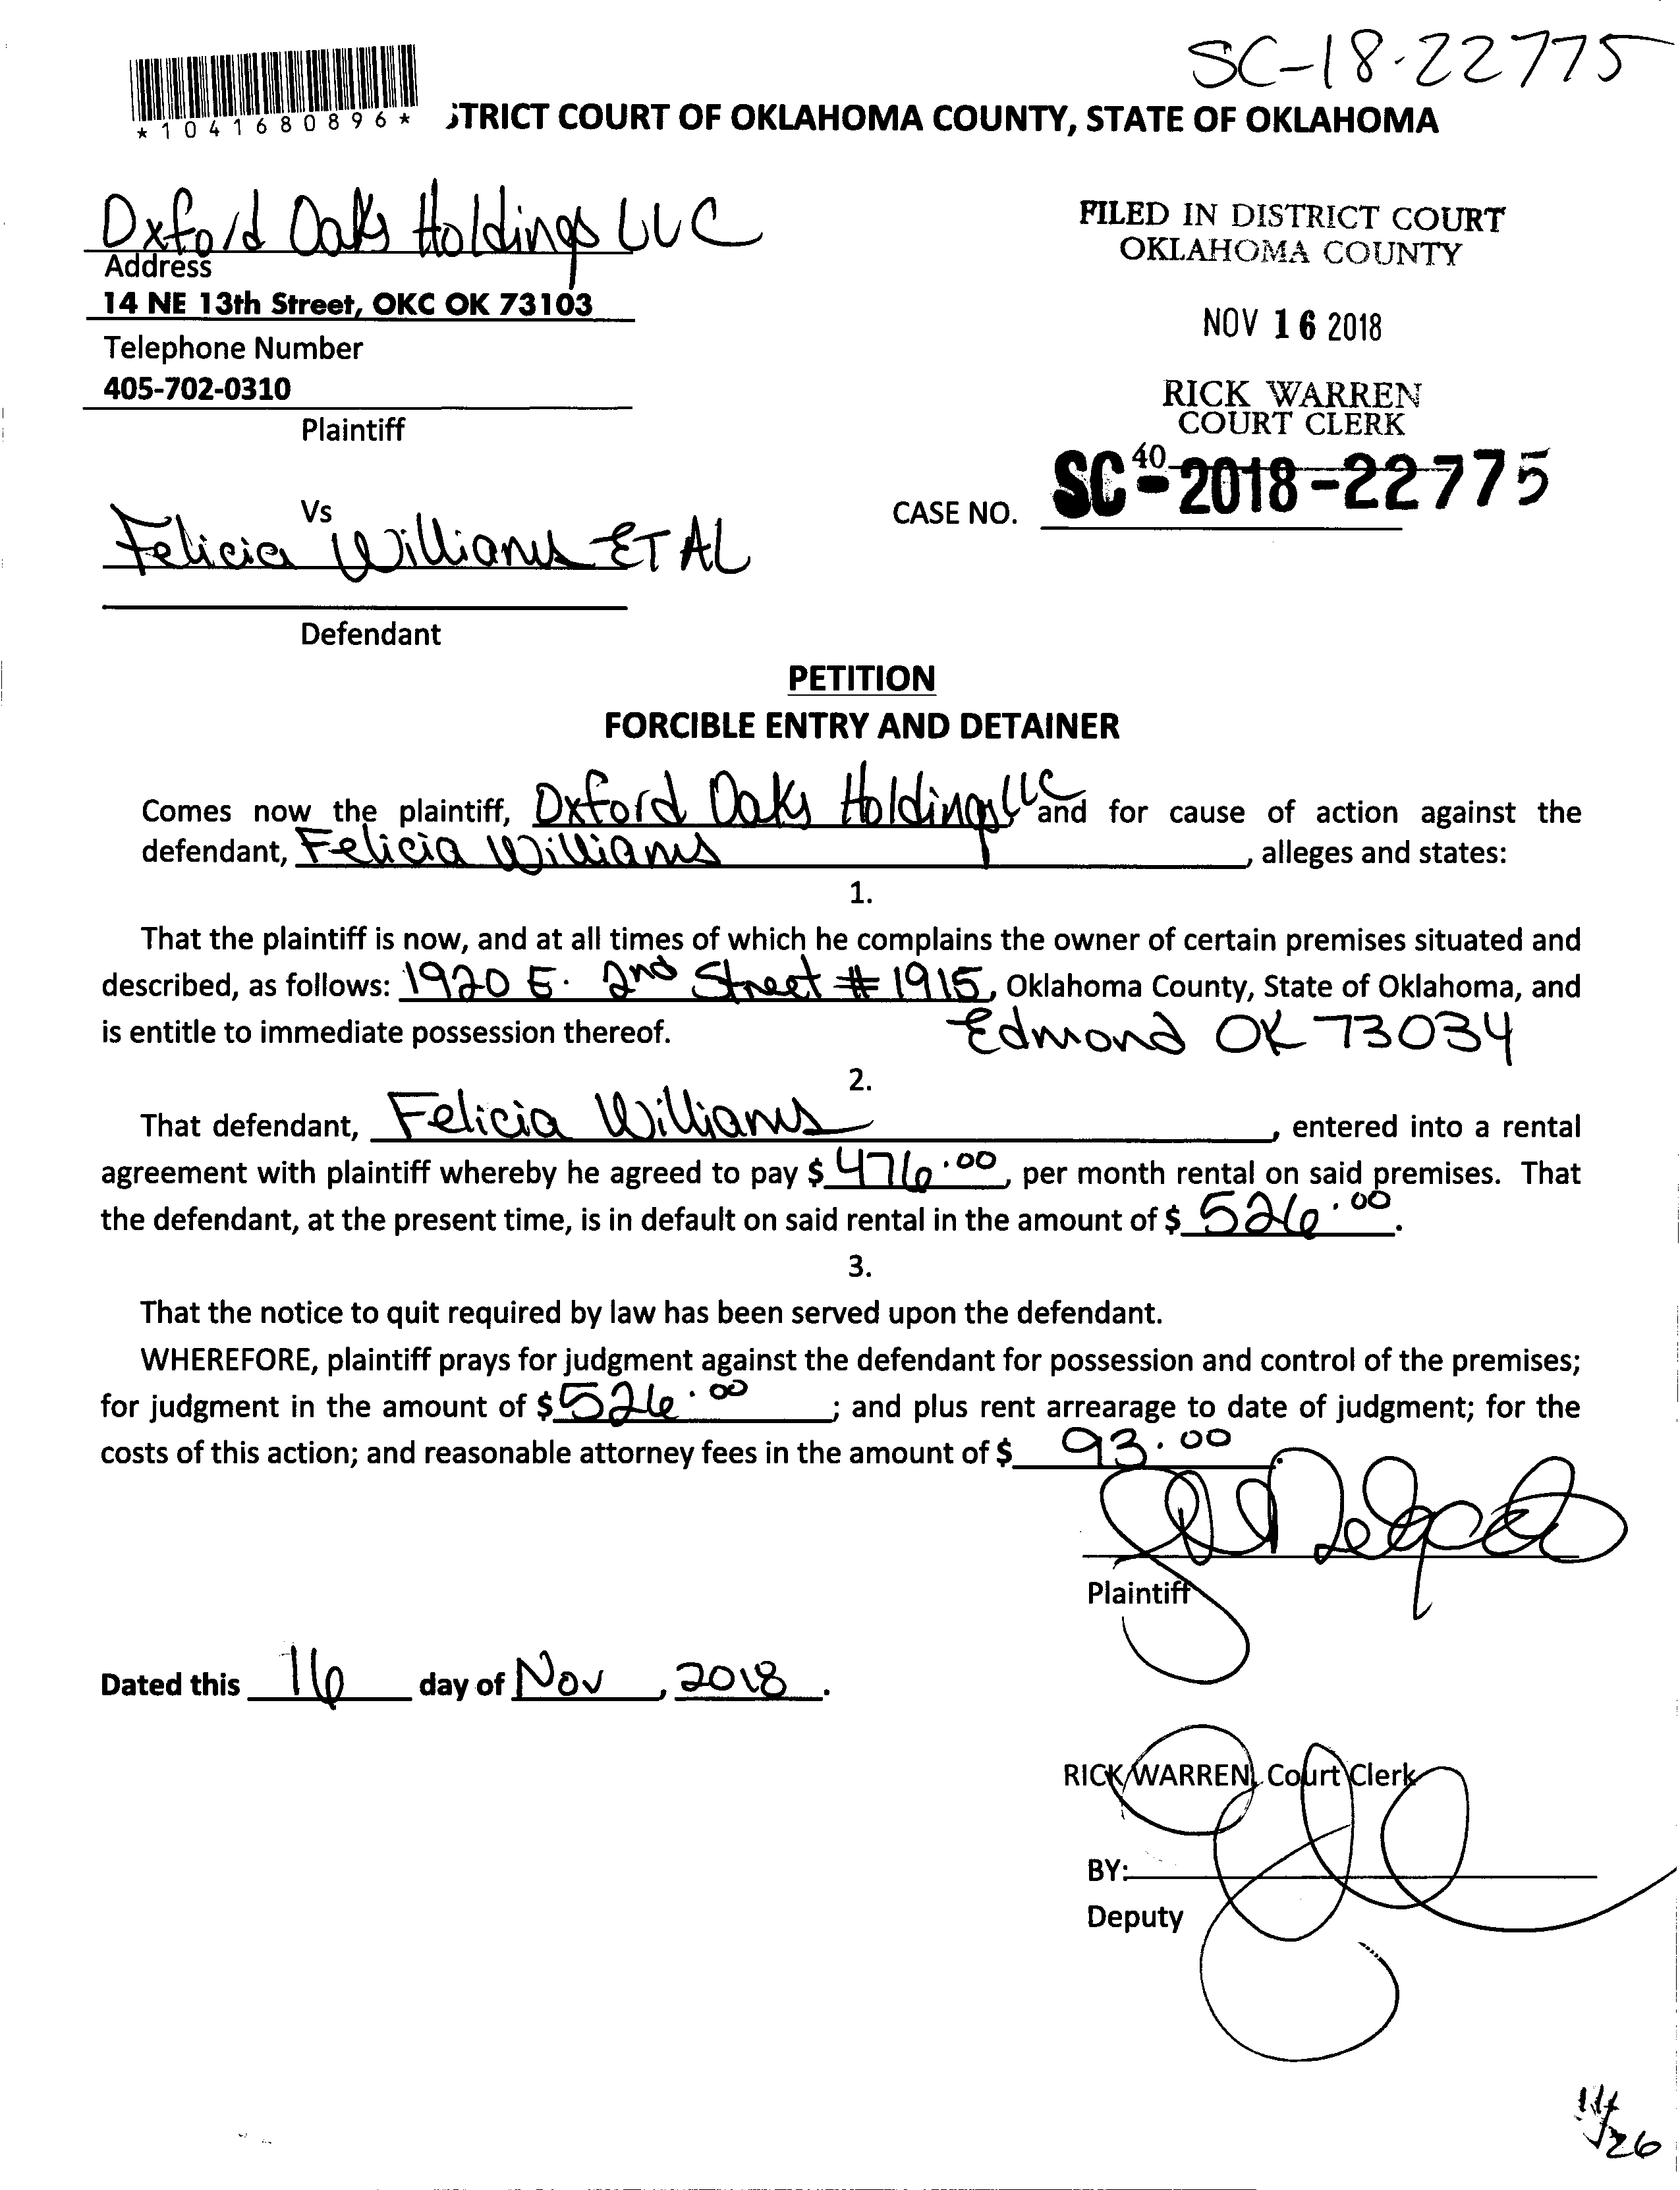 SC-18-22775
*1041680896*
STRICT COURT OF OKLAHOMA COUNTY, STATE OF OKLAHOMA
Oxford Oaks Holdings LLC
Address
14 NE 13th Street, OKC OK 73103
Telephone Number
405-702-0310
Plaintiff
FILED IN DISTRICT COURT
OKLAHOMA COUNTY
NOV 16 2018
RICK WARREN
COURT CLERK
40
CASE NO. SC-2018-22775
Vs
Felicia Williams ET AL
Defendant
PETITION
FORCIBLE ENTRY AND DETAINER
Comes now the plaintiff, Oxford Oaks Holdings LLC and for cause of action against the
defendant, Felicia Williams, alleges and states:
1.
That the plaintiff is now, and at all times of which he complains the owner of certain premises situated and
described, as follows: 1920 E. 2nd Street # 1915, Oklahoma County, State of Oklahoma, and
is entitle to immediate possession thereof. Edmond OK 73034
2.
That defendant, Felicia Williams, entered into a rental
agreement with plaintiff whereby he agreed to pay $ 476.00, per month rental on said premises. That
the defendant, at the present time, is in default on said rental in the amount of $ 526.00.
3.
That the notice to quit required by law has been served upon the defendant.
WHEREFORE, plaintiff prays for judgment against the defendant for possession and control of the premises;
for judgment in the amount of $ 526.00; and plus rent arrearage to date of judgment; for the
costs of this action; and reasonable attorney fees in the amount of $ 93.00.
Plaintiff
Dated this 16 day of Nov, 2018.
RICK WARREN, Court Clerk
BY:
Deputy
11/26